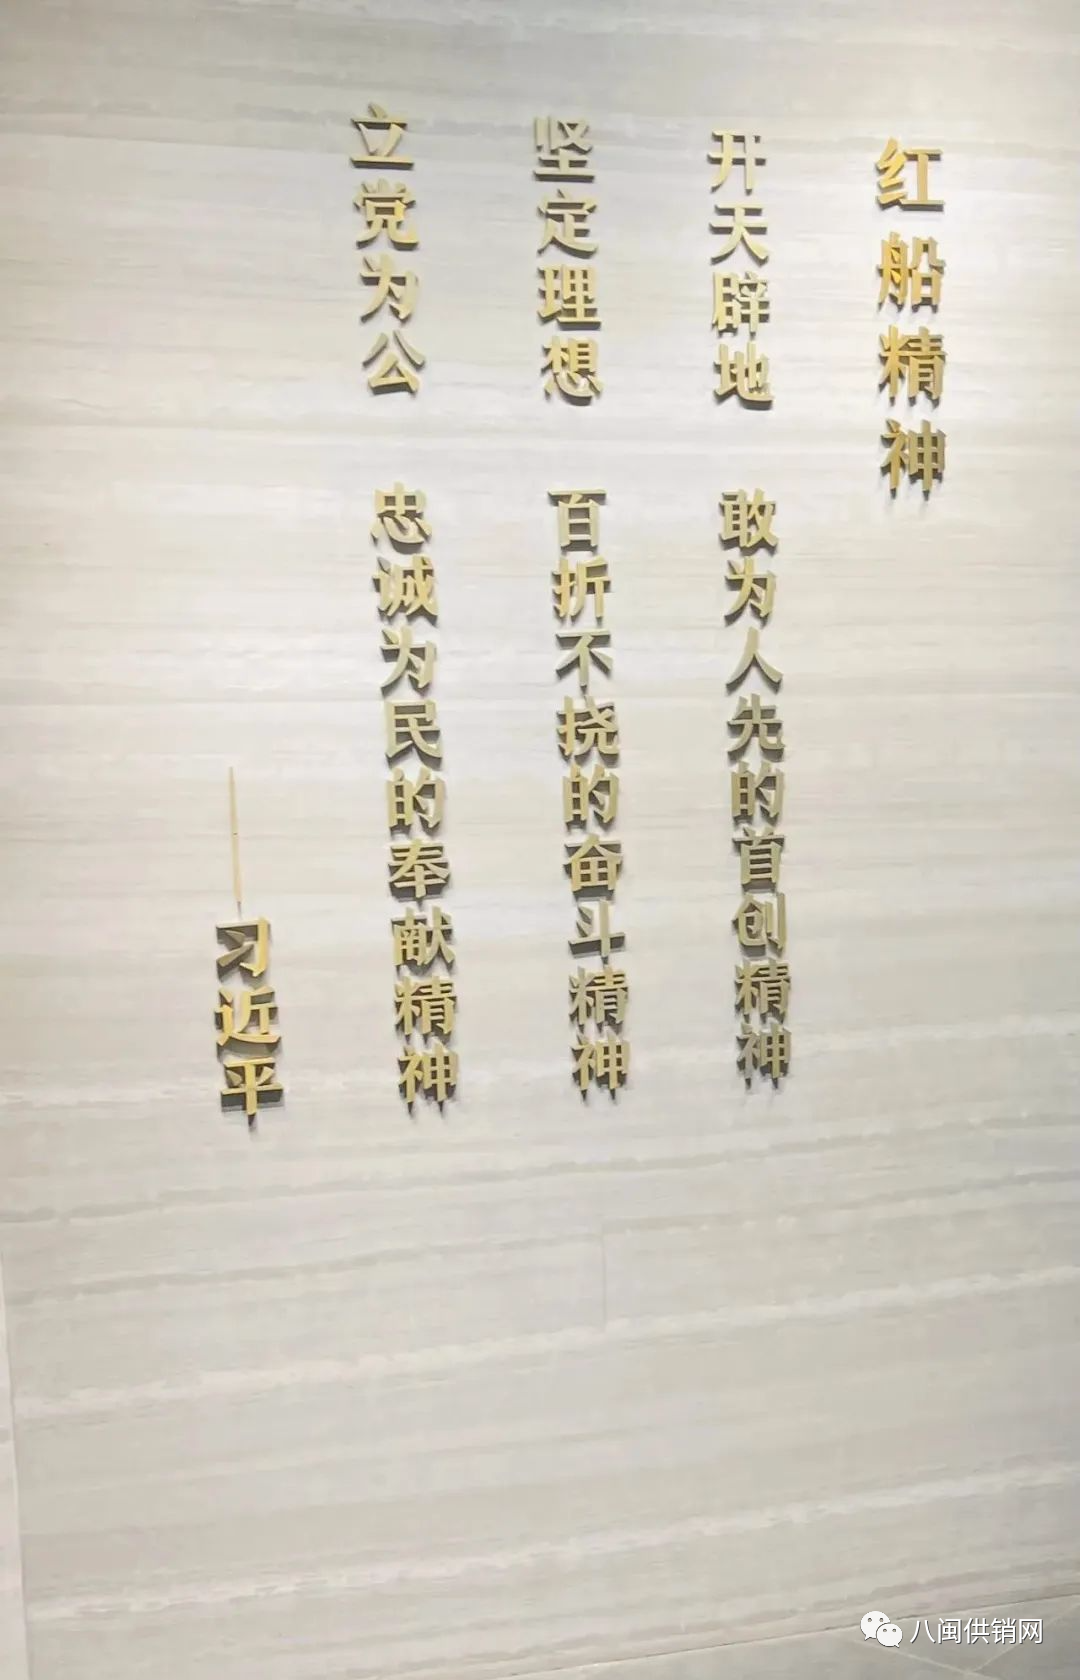 红船精神
开天辟地 敢为人先的首创精神
坚定理想 百折不挠的奋斗精神
立党为公 忠诚为民的奉献精神
——习近平
八闽供销网